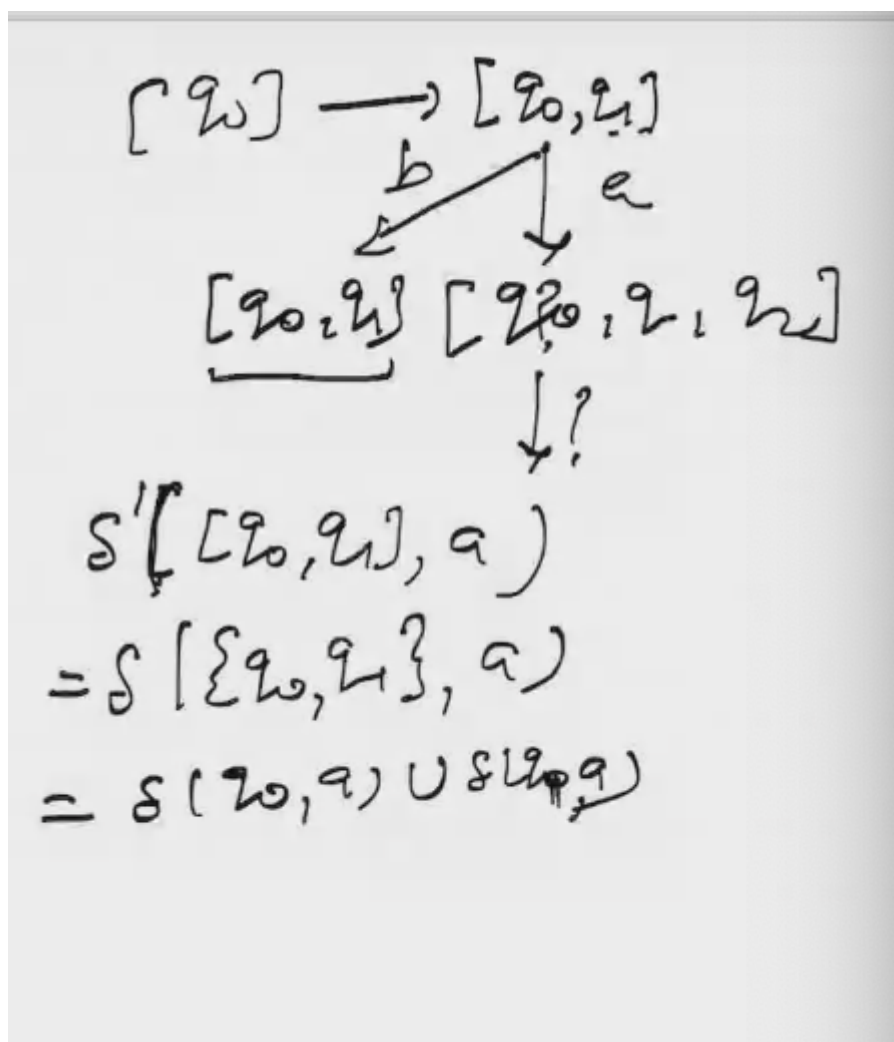 [q₀] → [q₀, q₁]
b a
[q₀, q₁] [q₀, q₁, q₂]
↓ ?
δ'([q₀, q₁], a)
= δ({q₀, q₁}, a)
= δ(q₀, a) ∪ δ(q₁, a)